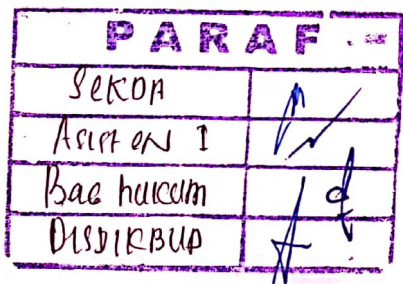 PARAF
SEKDA
ASISTEN I
Bag hukum
DISDIKBUD